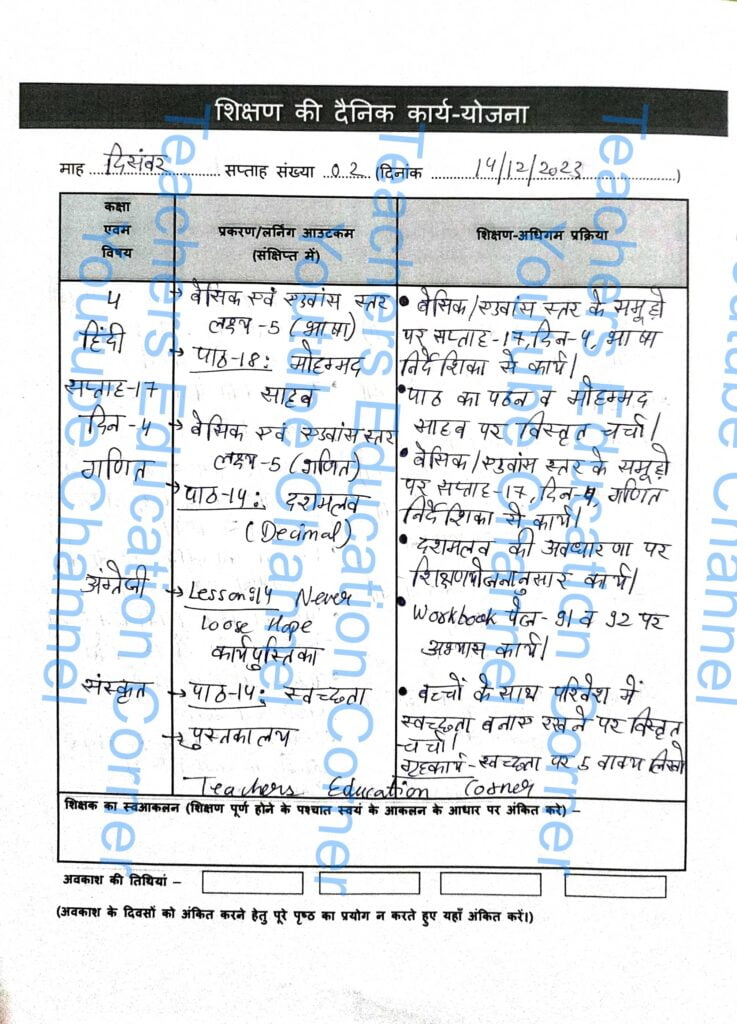 शिक्षण की दैनिक कार्य-योजना
माह दिसंबर सप्ताह संख्या 02 (दिनांक 14/12/2023)
कक्षा
एवम
विषय
प्रकरण/लर्निंग आउटकम
(संक्षिप्त में)
शिक्षण-अधिगम प्रक्रिया
4
हिंदी
सप्ताह-17
दिन-4
गणित
अंग्रेजी
संस्कृत
→ बेसिक एवं एडवांस स्तर
लक्ष्य-5 (भाषा)
→ पाठ-18: मोहम्मद
साहब
→ बेसिक एवं एडवांस स्तर
लक्ष्य-5 (गणित)
→ पाठ-14: दशमलव
(Decimal)
→ Lesson:14 Never
Loose Hope
कार्यपुस्तिका
→ पाठ-14: स्वच्छता
→ पुस्तकालय
• बेसिक/एडवांस स्तर के समूहो
पर सप्ताह-17, दिन-4, भाषा
निर्देशिका से कार्य।
• पाठ का पठन व मोहम्मद
साहब पर विस्तृत चर्चा।
• बेसिक/एडवांस स्तर के समूहो
पर सप्ताह-17, दिन-4, गणित
निर्देशिका से कार्य।
• दशमलव की अवधारणा पर
शिक्षणयोजनानुसार कार्य।
• Workbook पेज-91 व 92 पर
अभ्यास कार्य।
• बच्चों के साथ परिवेश में
स्वच्छता बनाए रखने पर विस्तृत
चर्चा।
गृहकार्य-स्वच्छता पर 5 वाक्य लिखो
Teachers Education Corner
शिक्षक का स्वआकलन (शिक्षण पूर्ण होने के पश्चात स्वयं के आकलन के आधार पर अंकित करे) –
अवकाश की तिथियां –
(अवकाश के दिवसों को अंकित करने हेतु पूरे पृष्ठ का प्रयोग न करते हुए यहाँ अंकित करें।)
Teachers Education Corner
Youtube Channel
Teachers Education Corner
Youtube Channel
Teachers Education Corner
Youtube Channel